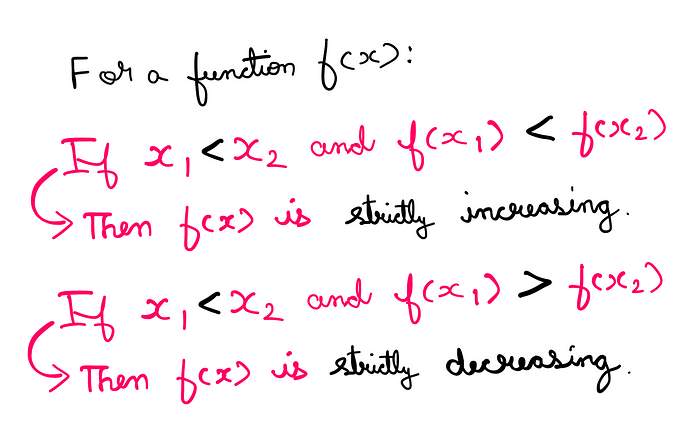 For a function f(x):
If x₁ < x₂ and f(x₁) < f(x₂)
Then f(x) is strictly increasing.
If x₁ < x₂ and f(x₁) > f(x₂)
Then f(x) is strictly decreasing.